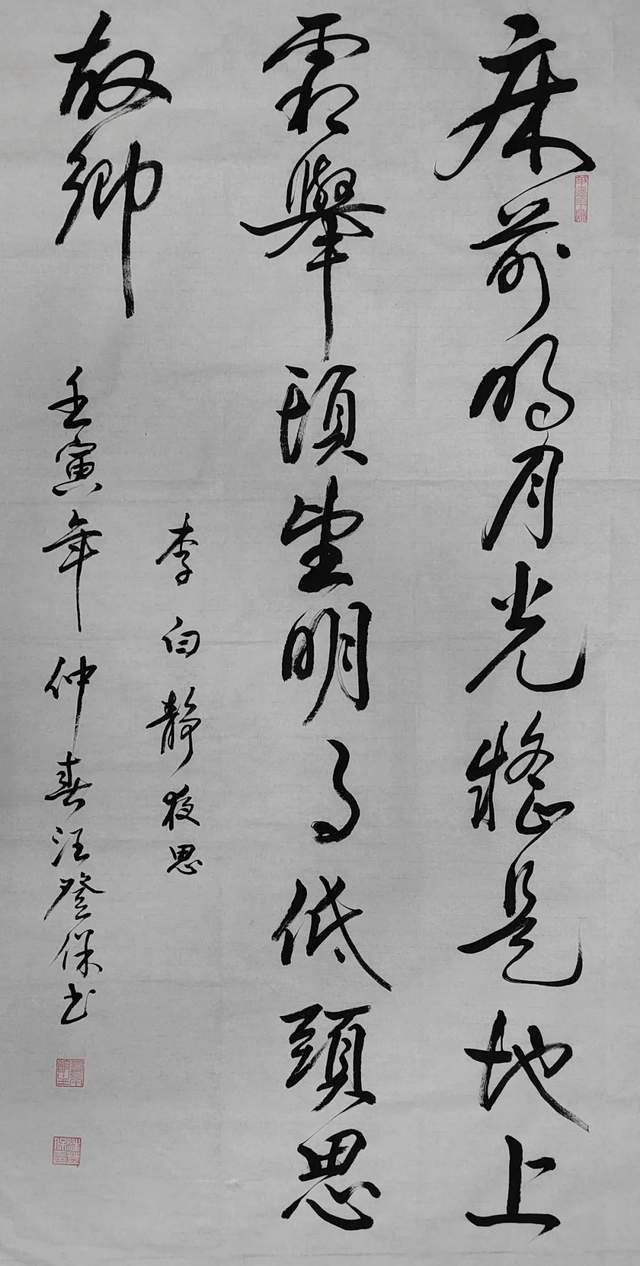 床前明月光疑是地上
霜舉頭望明月低頭思
故鄉
李白靜夜思
壬寅年仲春汪登保书